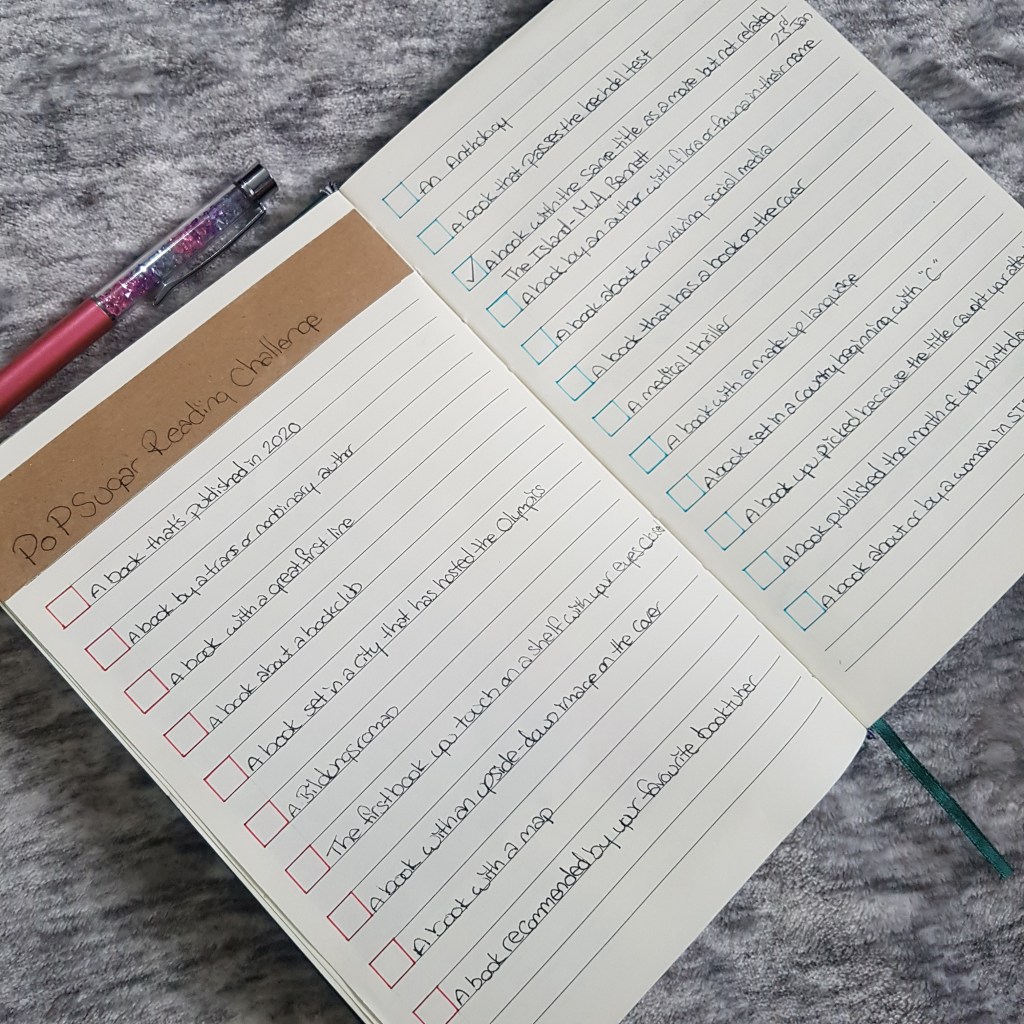 PoPSugar Reading Challenge
A book that's published in 2020
A book by a trans or nonbinary author
A book with a great first line
A book about a bookclub
A book set in a city that has hosted the Olympics
A Bildungsroman
The first book you touch on a shelf with your eyes close
A book with an upside-down image on the cover
A book with a map
A book recommended by your favourite booktuber
An Anthology
A book that passes the bechdel test
A book with the same title as a movie but not related
The Island - M.A. Bennett 23rd Jan
A book by an author with flora or fauna in their name
A book about or involving social media
A book that has a book on the cover
A medical thriller
A book with a made-up language
A book set in a country beginning with "C"
A book you picked because the title caught your atte
A book published the month of your birthda
A book about or by a woman in ST